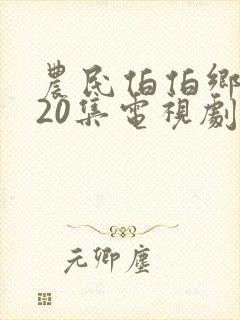 農民伯伯鄉
20集電視劇
元卿塵